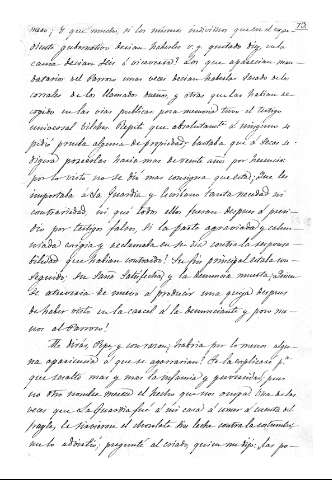 73
mero; y que mucho, si los mismos individuos que en el expe
diente gubernativo decian haberles v. g. quitado diez, en la
causa decian seis ó vice versa? Los que aparecian man-
datarios del Parroco unas veces decian haberlas sacado de los
corrales de los llamados dueños, y otras que las habian re-
cogido en las vias publicas para memoria tuvo el testigo
universal Vilches. Repito que absolutamte á ninguno se
pidió prueba alguna de propiedad; bastaba que á secas se
digera poseerlas hacia mas de veinte años por herencia
por lo visto no se dio mas consigna que esta; Que les
importaba á la Guardia y Centeno tanta necedad ni
contrariedad, ni que todos ellos fueran despues á presi-
dio por testigos falsos, si la parte agraviada y calum
niada exigia y reclamaba en su dia contra la responsa-
bilidad que habian contraido! Su fin principal estaba con-
seguido, su saña satisfecha, y la denuncia muerta; ¿quien
se atreveria de nuevo á producir una queja despues
de haber visto en la carcel á la denunciante y por me-
nor al Parroco!
Me dirás, Pepe, y con razon; habria por lo menos algu-
na apariencia á que se agarrarian! Te la esplicaré pa
que resalte mas y mas la infamia y perversidad, pues
no otro nombre merece el hecho que nos ocupa. Una de las
veces que La Guardia fué á mi casa á comer á cuenta del
frayle, le sirvieron el chocolate sin leche contra la costumbre;
me lo advirtió; pregunté al criado, quien me dijo: las po-